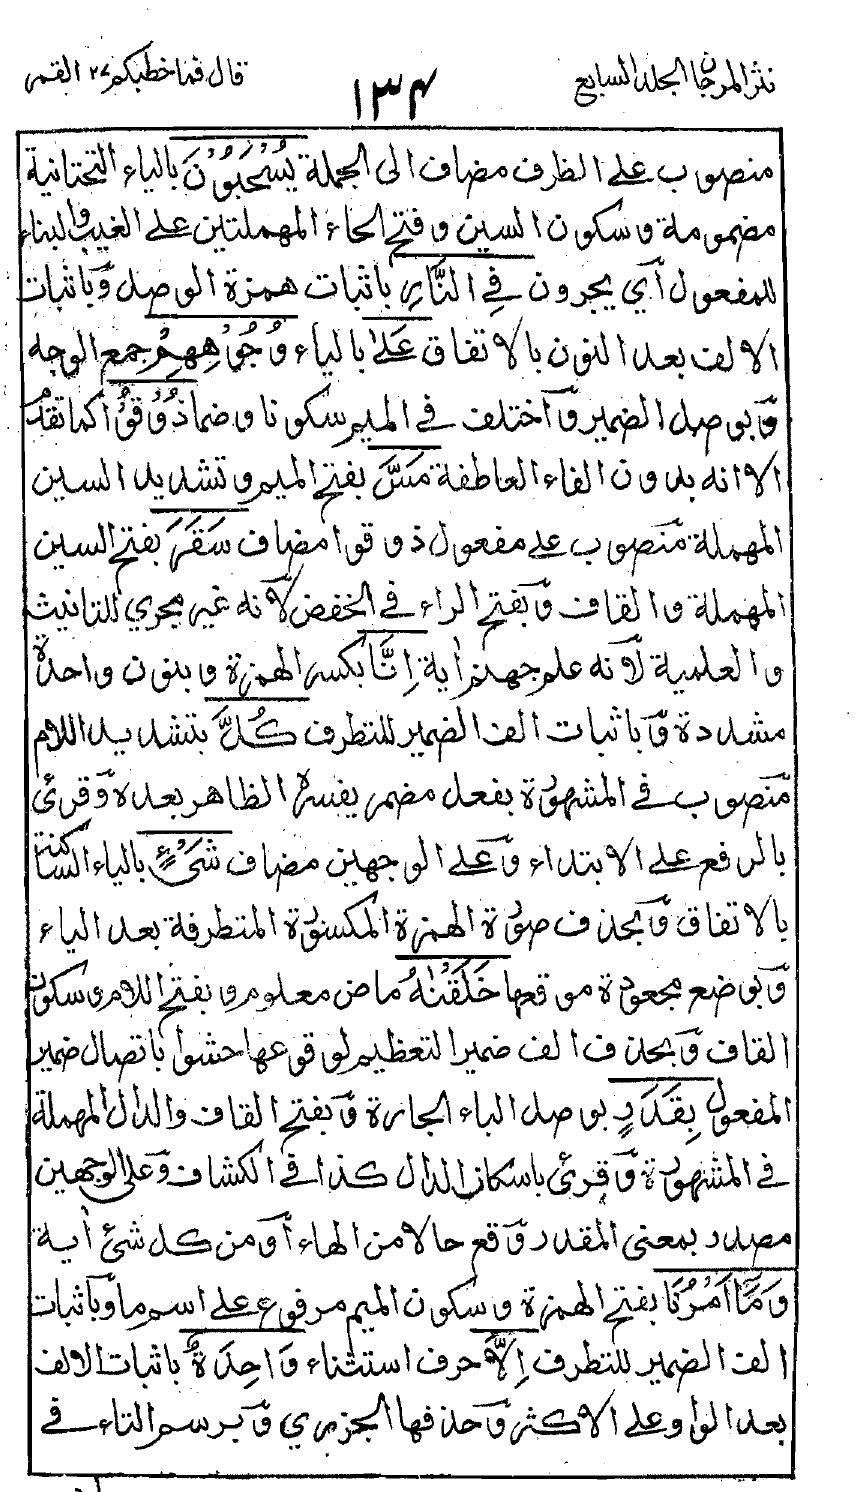 نثر المرجان الجلد السابع
١٣٤
قال فما خطبكم ٢٧ القمر
منصوب على الظرف مضاف الى الجملة يُسْحَبُوْنَ بالياء التحتانية
مضمومة وسكون السين وفتح الحاء المهملتين على الغيب والبناء
للمفعول أي يجرون فِي النَّارِ باثبات همزة الوصل وباثبات
الالف بعد النون بالاتفاق عَلٰى بالياء وُجُوْهِهِمْ جمع الوجه
وبوصل الضمير واختلف في الميم سكونا وضما ذُوْقُوْا كما تقدم
الا انه بدون الفاء العاطفة مَسَّ بفتح الميم وتشديد السين
المهملة منصوب على مفعول ذوقوا مضاف سَقَرَ بفتح السين
المهملة والقاف وبفتح الراء في الخفض لانه غير مجري للتانيث
والعلمية لانه علم جهنم أية اِنَّا بكسر الهمزة وبنون واحدة
مشددة وباثبات الف الضمير للتطرف كُلَّ بتشديد اللام
منصوب في المشهورة بفعل مضمر يفسره الظاهر بعده وقرئ
بالرفع على الابتداء وعلى الوجهين مضاف شَيْءٍ بالياء الساكنة
بالاتفاق وبحذف صورة الهمزة المكسورة المتطرفة بعد الياء
وبوضع مجعودة موقعها خَلَقْنٰهُ ماض معلوم وبفتح اللام وسكون
القاف وبحذف الف ضمير التعظيم لوقوعها حشوا باتصال ضمير
المفعول بِقَدَرٍ بوصل الباء الجارة وبفتح القاف والدال المهملة
في المشهورة وقرئ باسكان الدال كذا في الكشاف وعلى الوجهين
مصدر بمعنى المقدر وقع حالا من الهاء أو من كل شئ أية
وَمَآ اَمْرُنَا بفتح الهمزة وسكون الميم مرفوع على اسم ما وباثبات
الف الضمير للتطرف اِلَّا حرف استثناء وَاحِدَةٌ باثبات الالف
بعد الواو على الاكثر وحذفها الجزري وبرسم التاء في